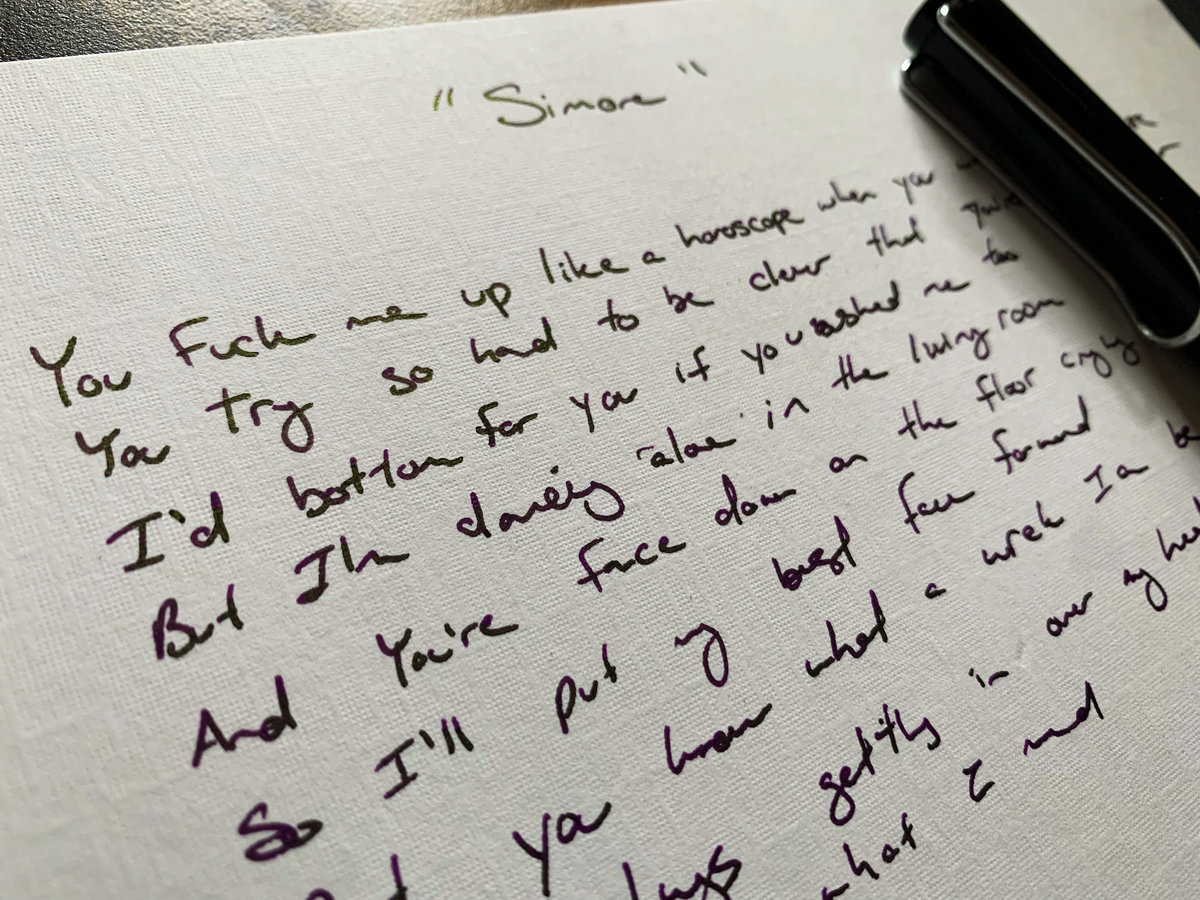 "Simone"
You Fuck me up like a horoscope when you
You try so hard to be clear that you're
I'd bottom for you if you asked me too
But I'm dancing alone in the living room
And You're face down on the floor crying
So I'll put my best face forward
you know what a wreck I am
getting in over my head
what I need